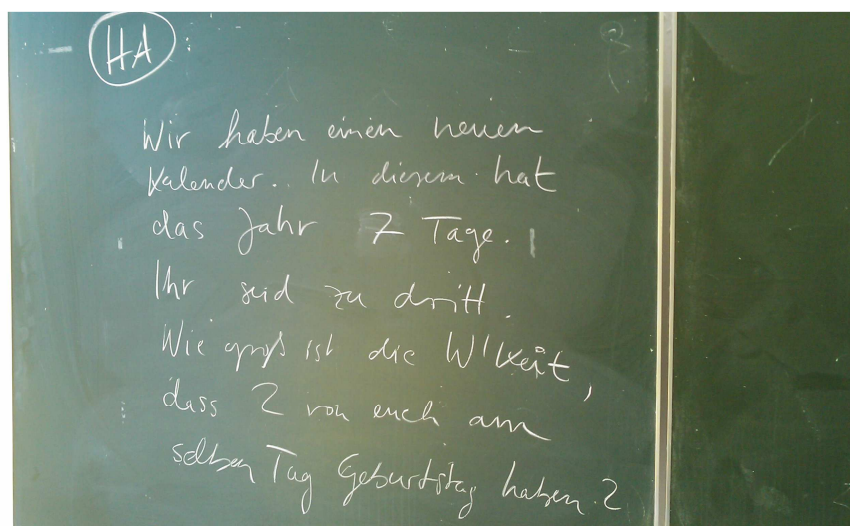 HA
Wir haben einen neuen
Kalender.. In diesem hat
das Jahr 7 Tage.
Ihr seid zu dritt.
Wie groß ist die W'keit,
dass 2 von euch am
selben Tag Geburtstag haben?